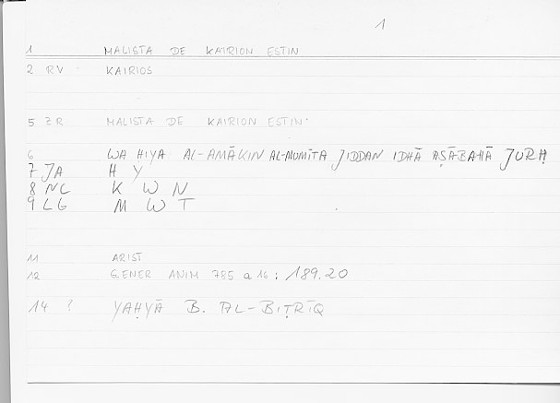 1
1 MALISTA DE KAIRION ESTIN
2 RV KAIRIOS
5 ZR MALISTA DE KAIRION ESTIN
6 WA HIYA AL-AMĀKIN AL-MUMĪTA JIDDAN IDHĀ AṢĀBAHĀ JURḤ
7 JA H Y
8 NC K W N
9 LG M W T
11 ARIST
12 GENER ANIM 785 a 16 ; 189.20
14 ? YAḤYĀ B. AL-BIṬRĪQ